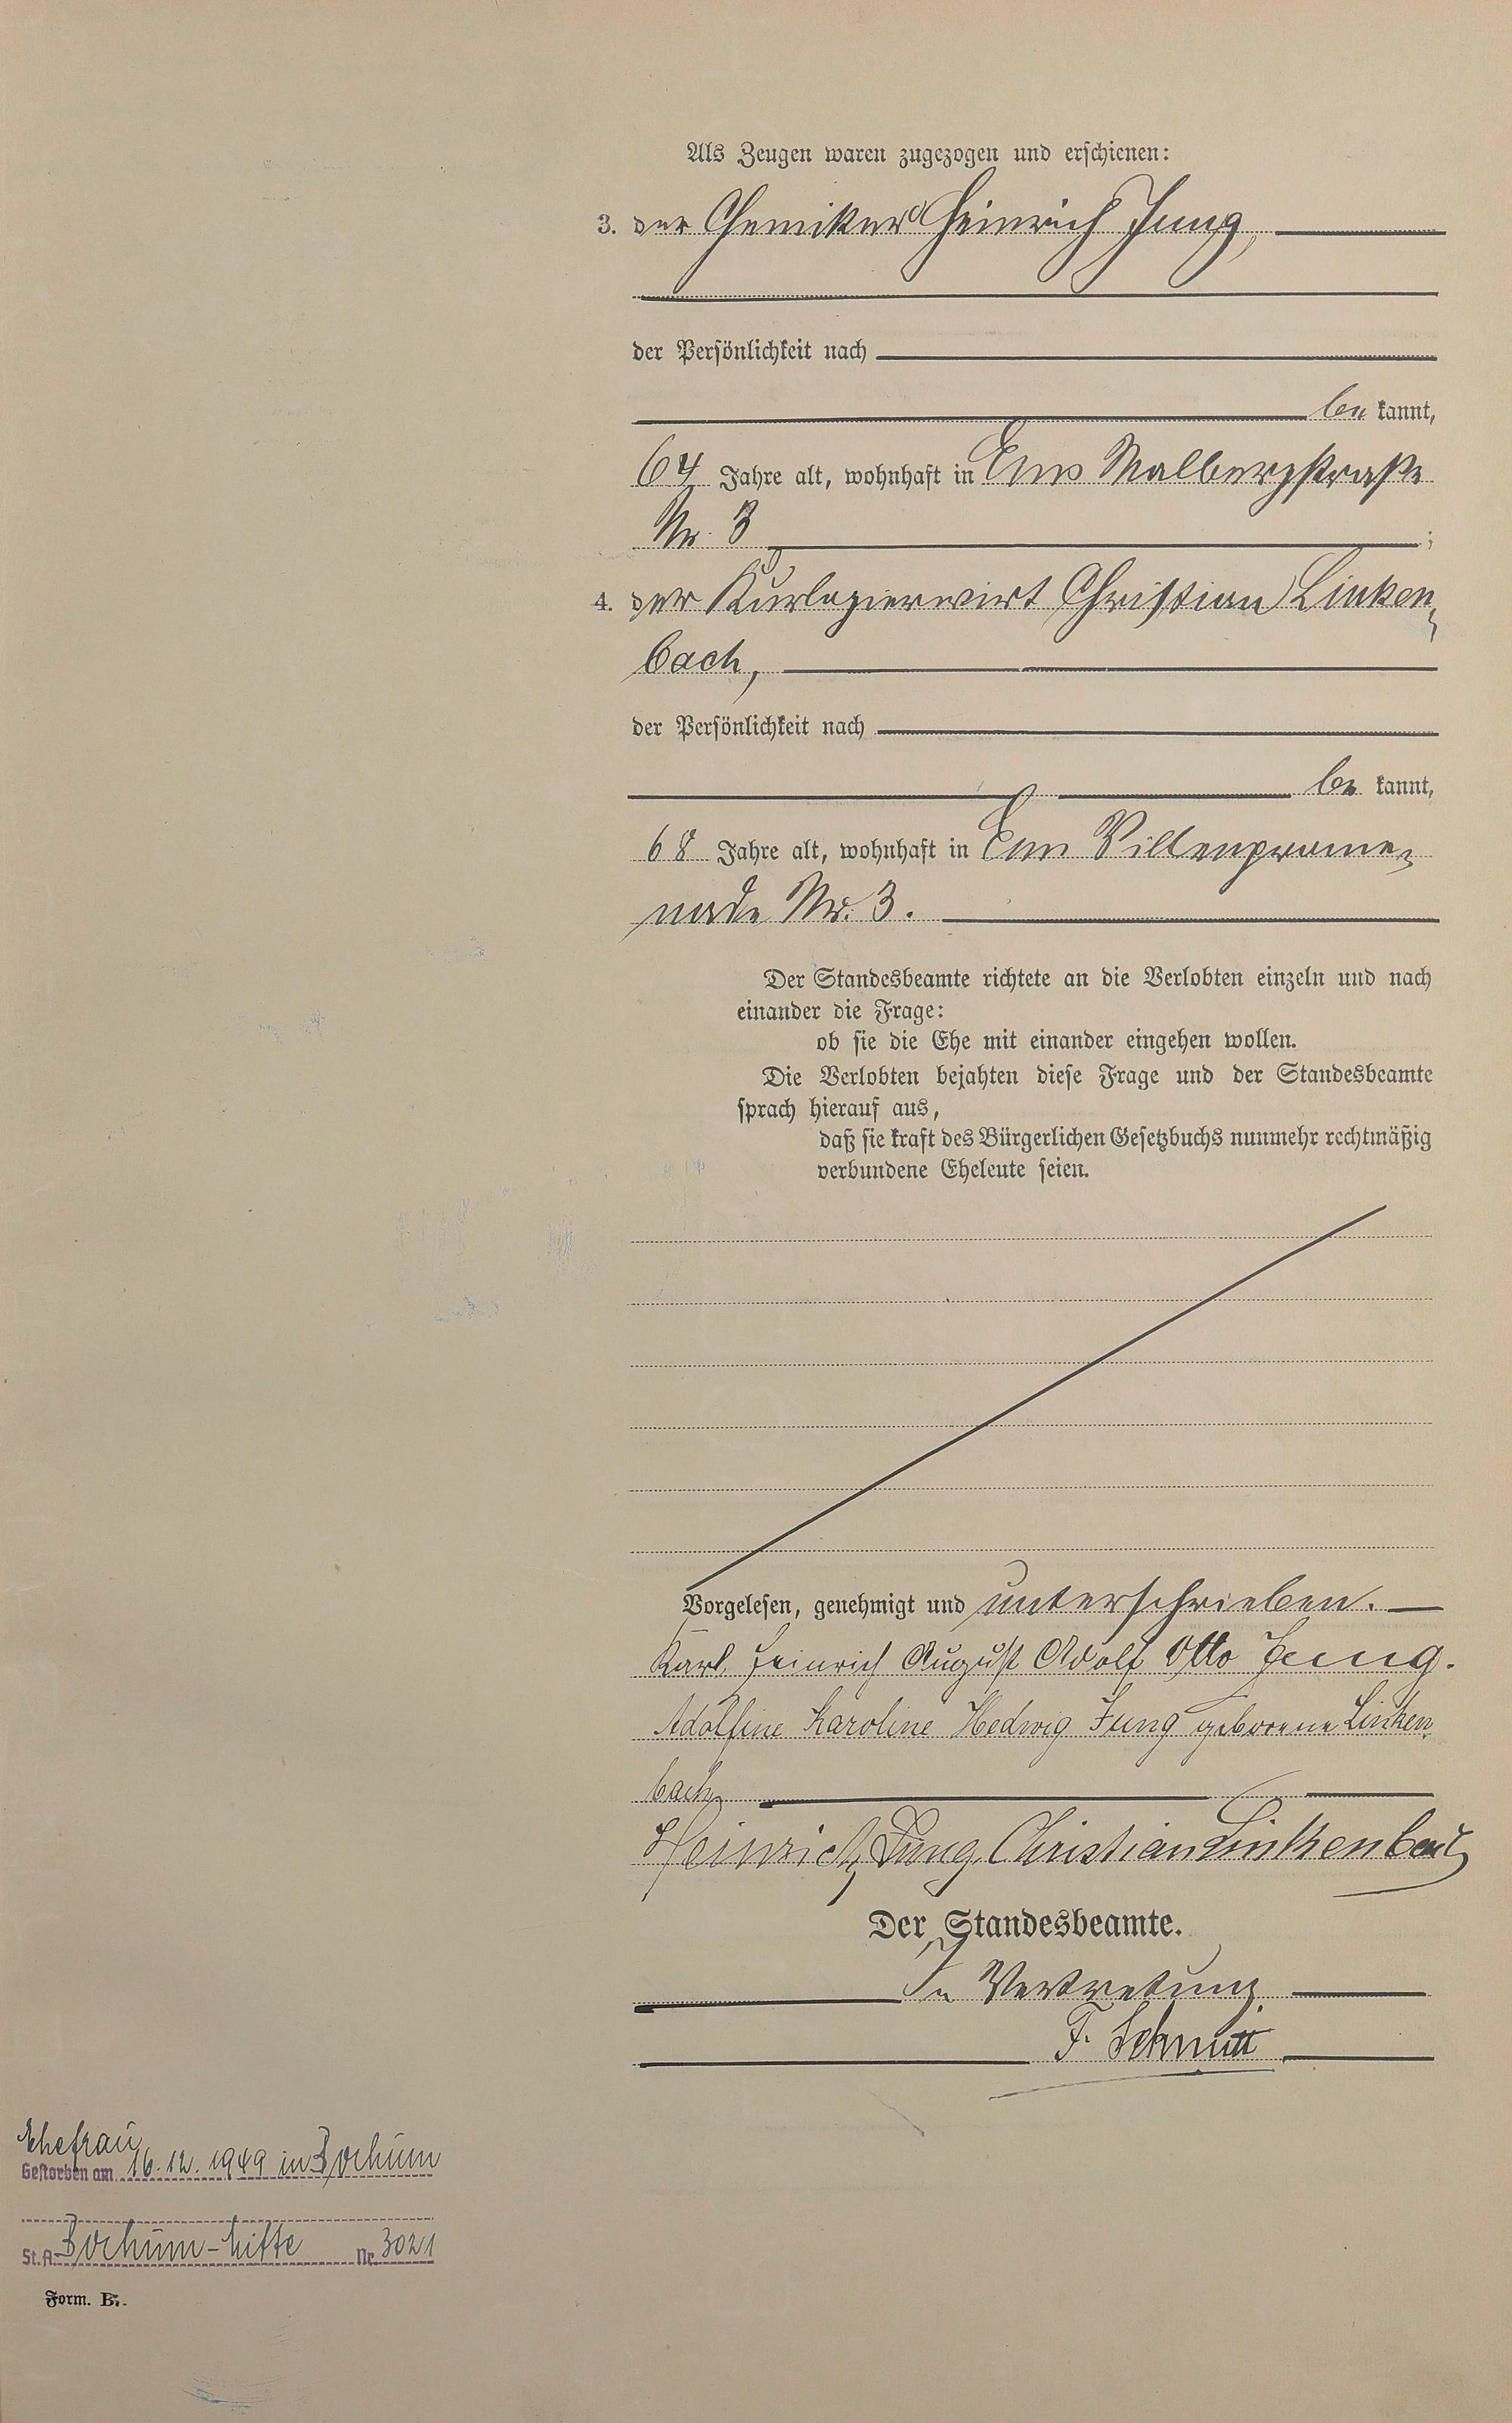 Als Zeugen waren zugezogen und erschienen:
3. der Chemiker Heinrich Jung,
der Persönlichkeit nach
be kannt,
64 Jahre alt, wohnhaft in Ems Malbergstraße
Nr. 3 ;
4. der Kurlogierwirt Christian Linken-
bach,
der Persönlichkeit nach
be kannt,
68 Jahre alt, wohnhaft in Ems Villenprome-
nade Nr. 3.
Der Standesbeamte richtete an die Verlobten einzeln und nach
einander die Frage:
ob sie die Ehe mit einander eingehen wollen.
Die Verlobten bejahten diese Frage und der Standesbeamte
sprach hierauf aus,
daß sie kraft des Bürgerlichen Gesetzbuchs nunmehr rechtmäßig
verbundene Eheleute seien.
Vorgelesen, genehmigt und unterschrieben.
Karl Heinrich August Adolf Otto Jung.
Adolfine Karoline Hedwig Jung geborene Linken
bach
Heinrich Jung, Christian Linkenbach
Der Standesbeamte.
In Vertretung.
F. Schmitt
Ehefrau
Gestorben am 16.12.1949 in Bochum
St.A. Bochum-Mitte Nr. 3021
Form. B.